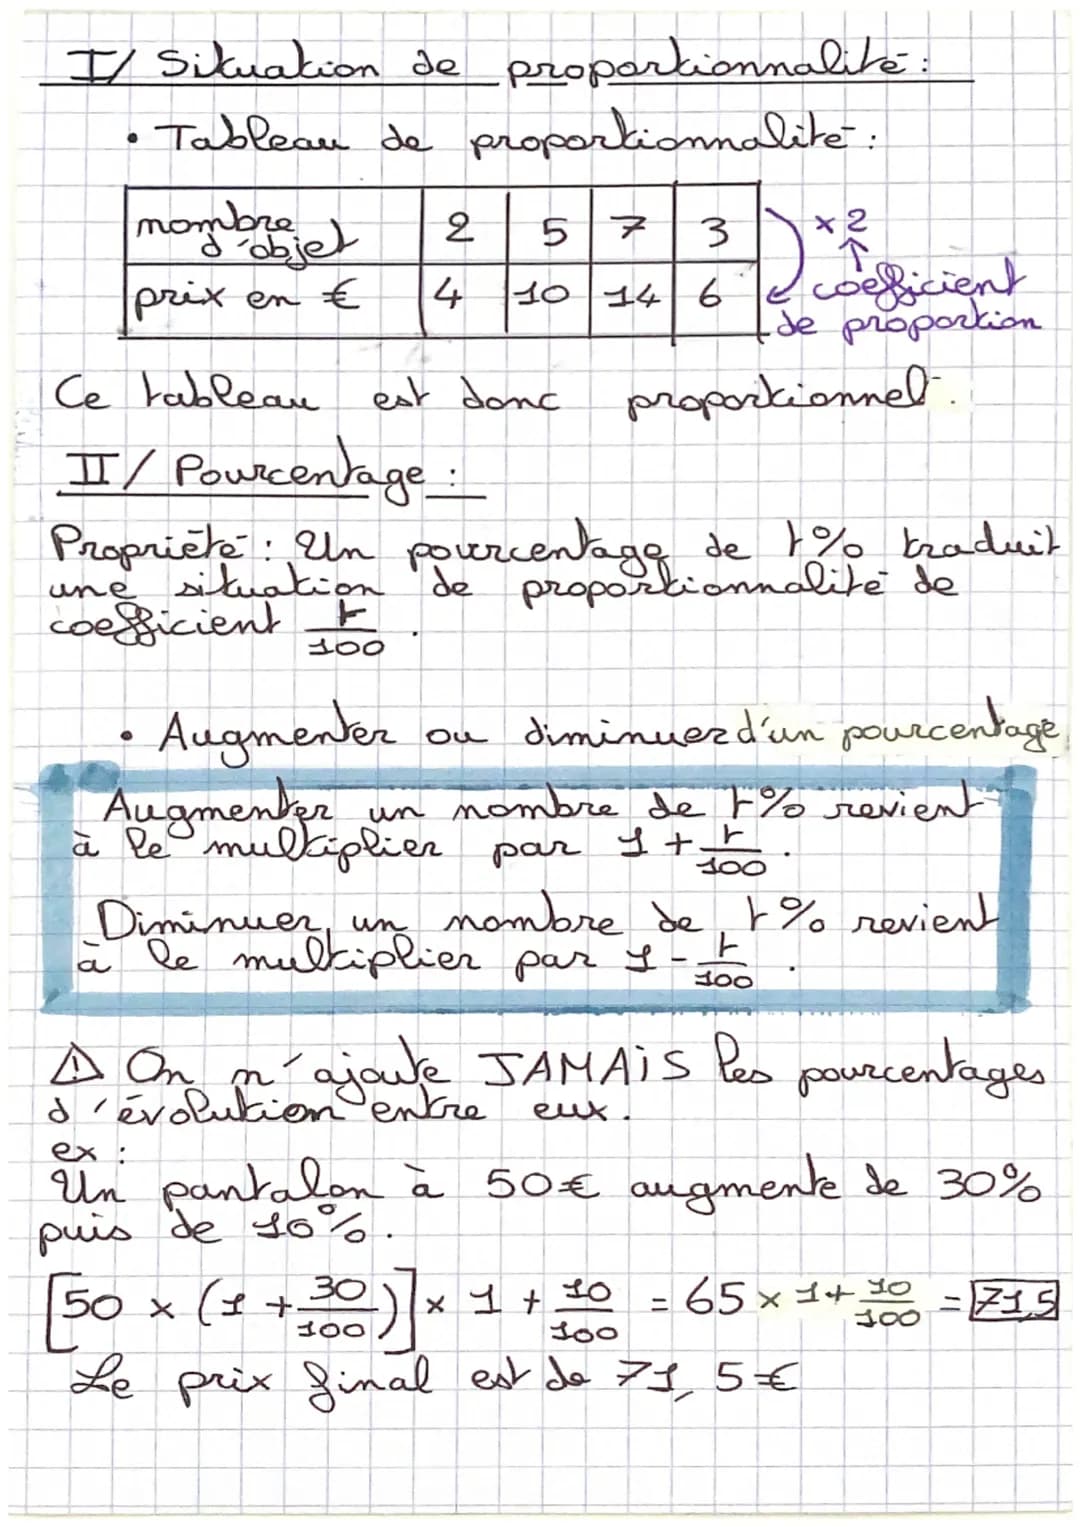 I/ Situation de proportionnalité :
• Tableau de proportionnalité :
nombre d'objet 2 5 7 3
prix en € 4 10 14 6
× 2
↑
coefficient
de proportion
Ce tableau est donc proportionnel.
II/ Pourcentage :
Propriété : Un pourcentage de t% traduit
une situation de proportionnalité de
coefficient t/100 .
• Augmenter ou diminuer d'un pourcentage
Augmenter un nombre de t% revient
à le multiplier par 1 + t/100 .
Diminuer un nombre de t% revient
à le multiplier par 1 - t/100 .
⚠ On n'ajoute JAMAiS les pourcentages
d'évolution entre eux.
ex :
Un pantalon à 50€ augmente de 30%
puis de 10%.
[50 × (1 + 30/100)] × 1 + 10/100 = 65 × 1 + 10/100 = 71,5
Le prix final est de 71,5€